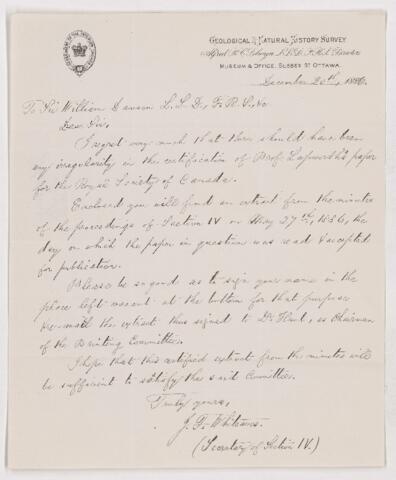 GEOLOGICAL & NATURAL HISTORY SURVEY
Alfred R. C. Selwyn L.L.D., F.R.S. Director
MUSEUM & OFFICE, SUSSEX ST. OTTAWA.
December 20th, 1886.
To Sir William Dawson L.L.D., F.R.S. &c
Dear Sir,
I regret very much that there should have been
any irregularity in the certification of Prof. Lapworth's paper
for the Royal Society of Canada.
Enclosed you will find an extract from the minutes
of the proceedings of Section IV on May 27th, 1886, the
day on which the paper in question was read & accepted
for publication.
Please be so good as to sign your name in the
place left vacant at the bottom for that purpose
& e-mail the extract thus signed to Dr. Hunt, as Chairman
of the Printing Committee.
I hope that this certified extract from the minutes will
be sufficient to satisfy the said Committee.
Truly yours,
J. F. Whiteaves.
(Secretary of Section IV.)